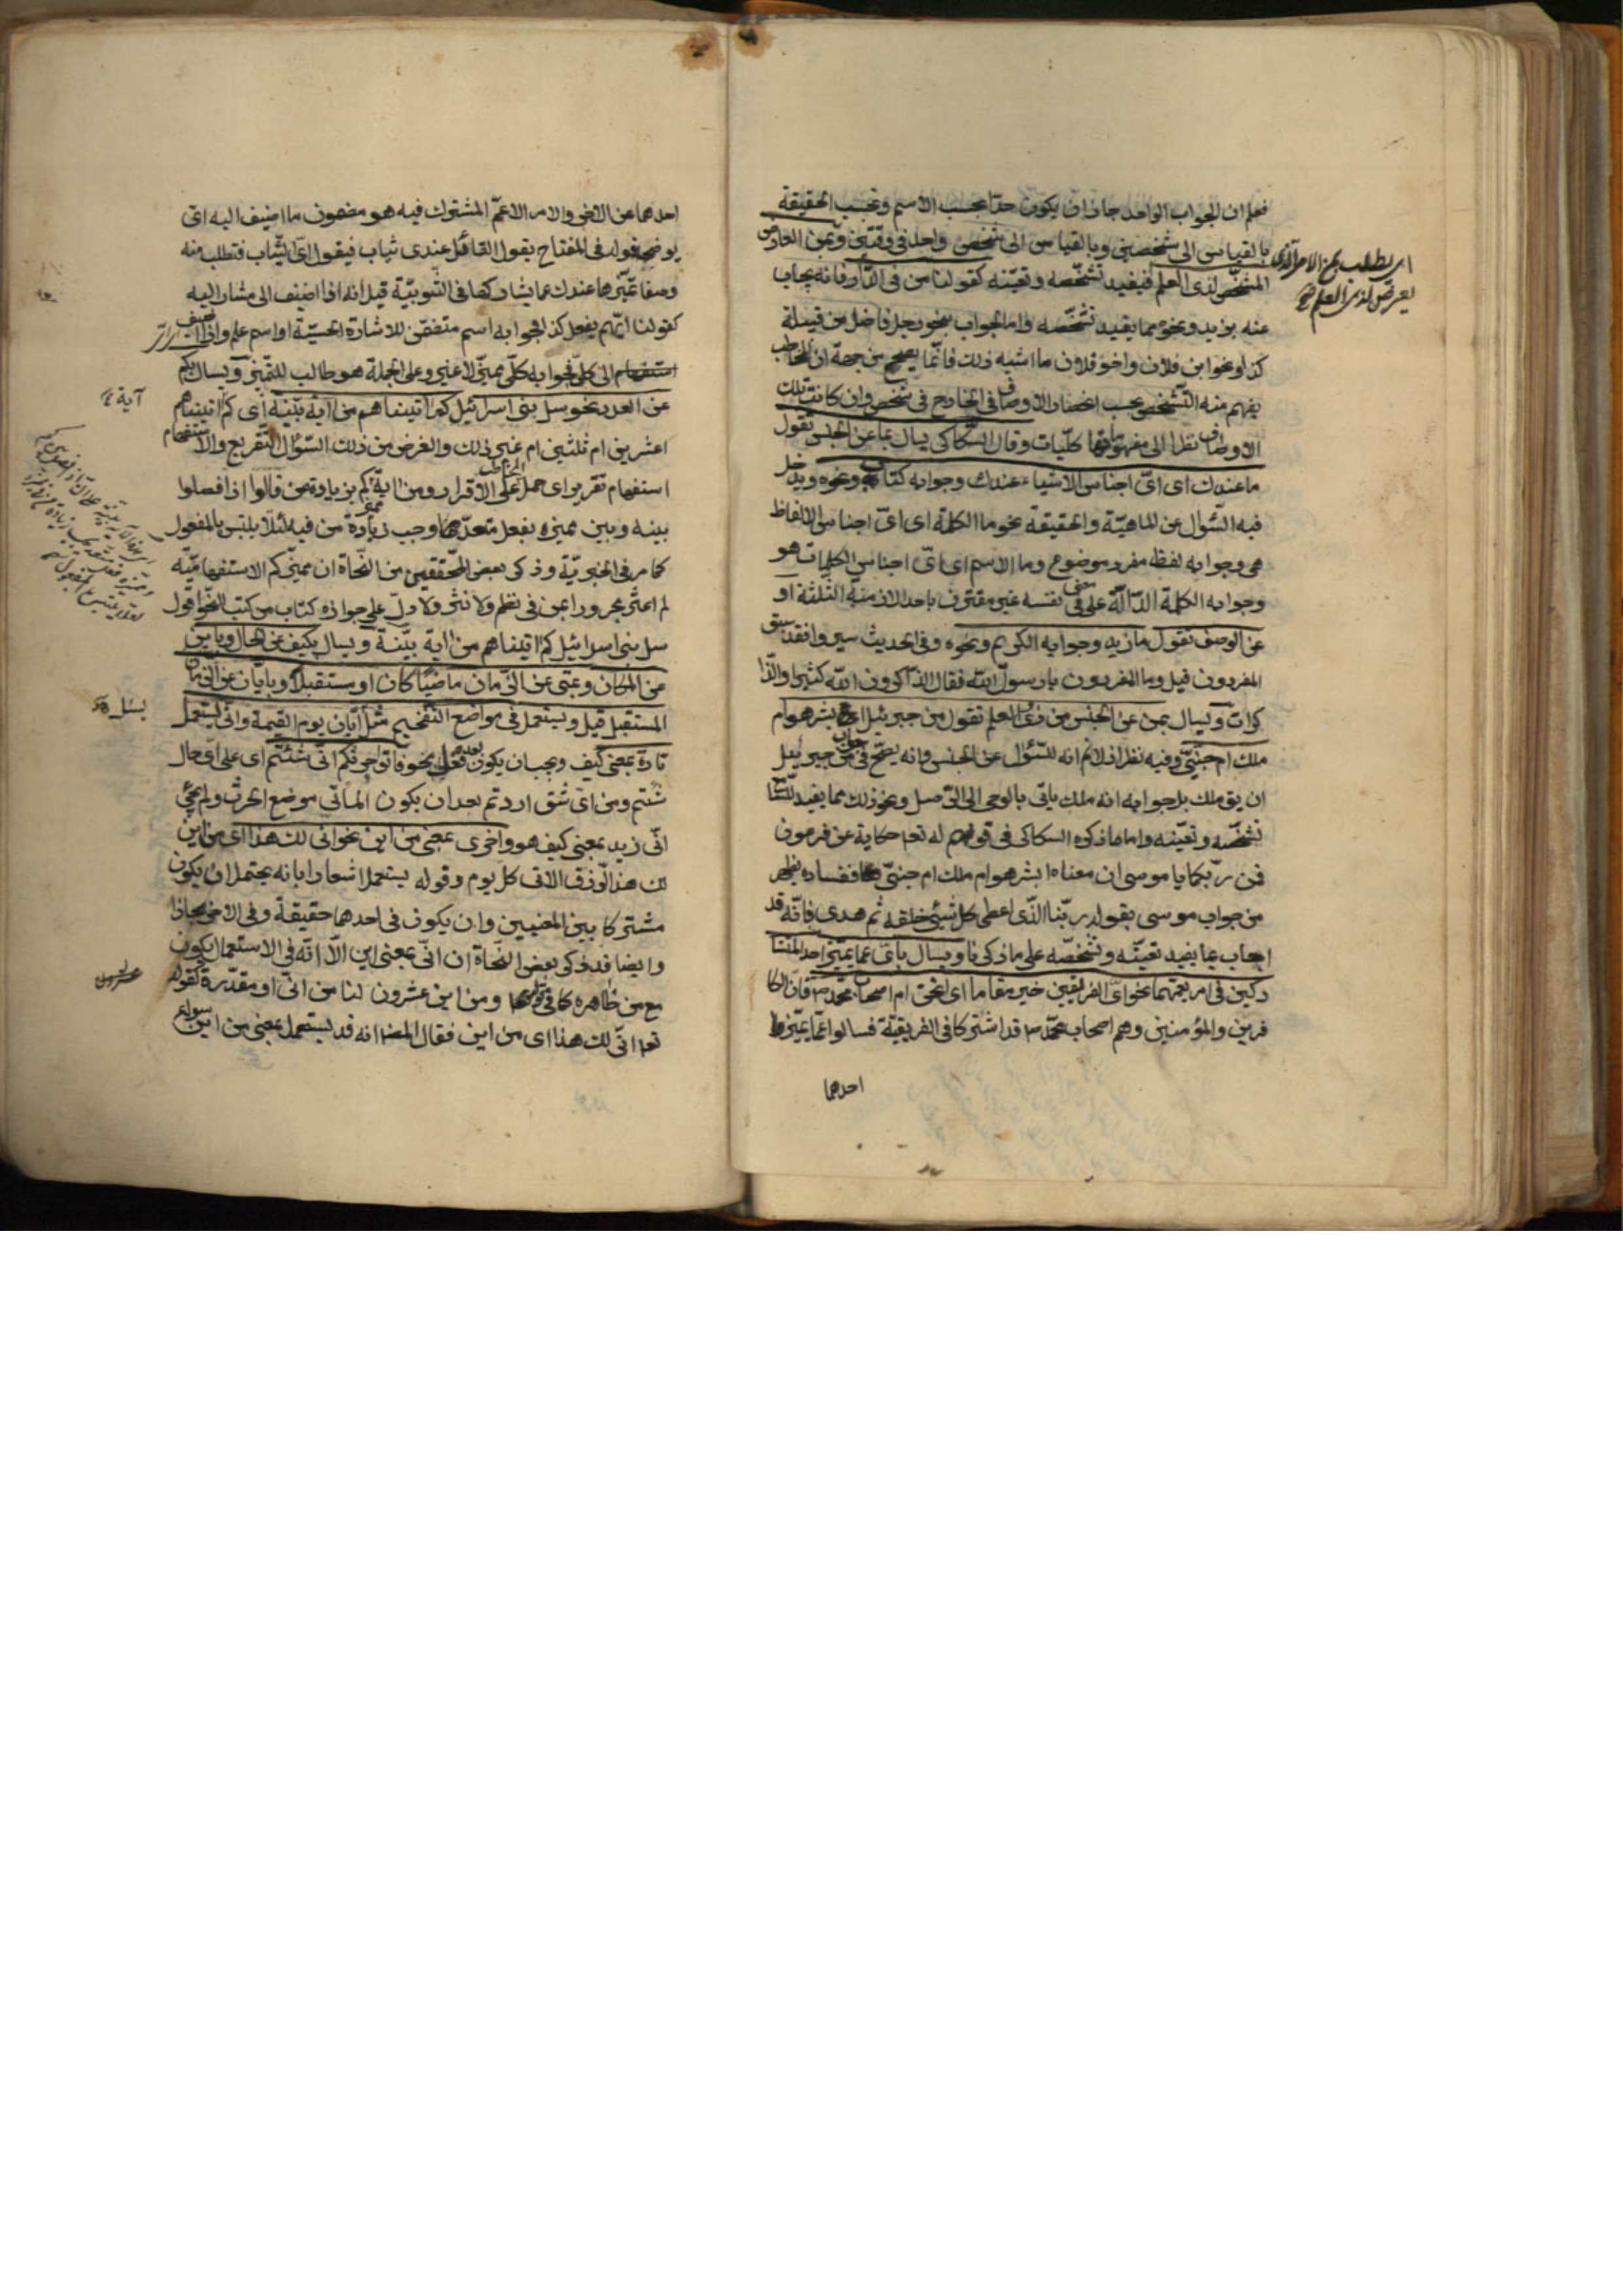 فعلم ان الجواب الواحد جاز ان يكون حدا بحسب الاسم وبحسب الحقيقة
بالقياس الى شخصين وبالقياس الى شخص واحد فى وقتين وبمن العارض
المشخص لذى العلم فيفيد تشخصه وتعينه كقولنا من فى الدار فانه يجاب
عنه بزيد ونحوه مما يفيد تشخصه واما الجواب بنحو رجل فاضل من قبيلة
كذا ونحو ابن فلان واخو فلان وما اشبه ذلك فانما يصح من جهة ان المخاطب
يفهم منه التشخص بحسب انحصار الاوصاف فى الخارج فى شخص وان كانت تلك
الاوصاف نظرا الى مفهوماتها كليات وقال السكاكى يسال بما عن الجنس تقول
ما عندك اى اى اجناس الاشياء عندك وجوابه كتاب ونحوه ويدخل
فيه السؤال عن الماهية والحقيقة نحو ما الكلمة اى اى اجناس الالفاظ
هى وجوابه لفظ مفرد موضوع وما الاسم اى اى اجناس الكلمات هو
وجوابه الكلمة الدالة على معنى فى نفسه غير مقترن باحد الازمنة الثلثة او
عن الوصف تقول ما زيد وجوابه الكريم ونحوه وفى الحديث سيروا فقد سبق
المفردون قيل وما المفردون يا رسول الله فقال الذاكرون الله كثيرا والذا
كرات ويسال بمن عن الجنس من ذوى العلم تقول من جبرئيل اى بشر هو ام
ملك ام جنى وفيه نظر اذ لانم انه للسؤال عن الجنس وانه يصح فى جواب من جبرئيل
ان يق ملك بل جوابه انه ملك ياتى بالوحى الى الرسل ونحو ذلك مما يفيد
تشخصه وتعينه واما ما ذكره السكاكى فى قوله تعا حكاية عن فرعون
فمن ربكما يا موسى ان معناه ابشر هو ام ملك ام جنى ففساده يظهر
من جواب موسى بقوله ربنا الذى اعطى كل شئ خلقه ثم هدى فانه قد
اجاب بما يفيد تعينه وتشخصه على ما ذكرنا ويسال باى عما يميز احد المتشا
ركين فى امر يعمهما نحو اى الفريقين خير مقاما اى انحن ام اصحاب محمد ص فان الكا
فرين والمؤمنين وهم اصحاب محمد ص قد اشتركا فى الفريقية فسالوا عما يميز
احدهما
اى يطلب بمن الامر الذى
يعرض لذى العلم صح
احدهما عن الاخر والامر الاعم المشترك فيه هو مضمون ما اضيف اليه اى
يوضحه قوله فى المفتاح يقول القائل عندى ثياب فيقول اى الثياب فتطلب منه
وصفا يميزها عندك عما يشاركها فى الثوبية قيل انه اذا اضيف الى مشار اليه
كقولنا ايهم يفعل كذا فجوابه اسم متضمن للاشارة الحسية او اسم علم واذا اضيف
الى كلى فجوابه كلى مميز لا غير وعلى الجملة هو طالب للتمييز ويسال بكم
عن العدد نحو سل بنى اسرائيل كم اتيناهم من اية بينة اى كم اتيناهم
اعشرين ام ثلثين ام غير ذلك والغرض من ذلك السؤال التقريع والاستفهام
استفهام تقرير اى حمل المخاطب على الاقرار ومن اية مميز كم بزيادة من قالوا اذا فصلوا
بينه وبين مميزه بفعل متعد وجب زيادة من فيه لئلا يلتبس بالمفعول
كما مر فى الخبرية وذكر بعض المحققين من النحاة ان مميز كم الاستفهامية
لم اعثر مجرورا بمن فى نظم ولا نثر ولا دل على جوازه كتاب من كتب النحو اقول
سل بنى اسرائيل كم اتيناهم من اية بينة ويسال بكيف عن الحال وباين
عن المكان وبمتى عن الزمان ماضيا كان او مستقبلا وبايان عن الزمان
المستقبل قيل ويستعمل فى مواضع التفخيم مثل ايان يوم القيمة وانى يستعمل
تارة بمعنى كيف ويجب ان يكون بعده فعل نحو فاتوا حرثكم انى شئتم اى على اى حال
شئتم ومن اى شق اردتم بعد ان يكون الماتى موضع الحرث ولم يجئ
انى زيد بمعنى كيف هو واخرى بمعنى من اين نحو انى لك هذا اى من اين
لك هذا الرزق الاتى كل يوم وقوله يستعمل اشعار بانه يحتمل ان يكون
مشتركا بين المعنيين وان يكون فى احدهما حقيقة وفى الاخر مجازا
وايضا قد ذكر بعض النحاة ان انى بمعنى اين الا انه فى الاستعمال يكون
مع من ظاهرة كما فى قوله ومن اين عشرون لنا من انى او مقدرة كقوله
تعا انى لك هذا اى من اين فقال المص انه قد يستعمل بمعنى من اين سواء
آية
يسئل